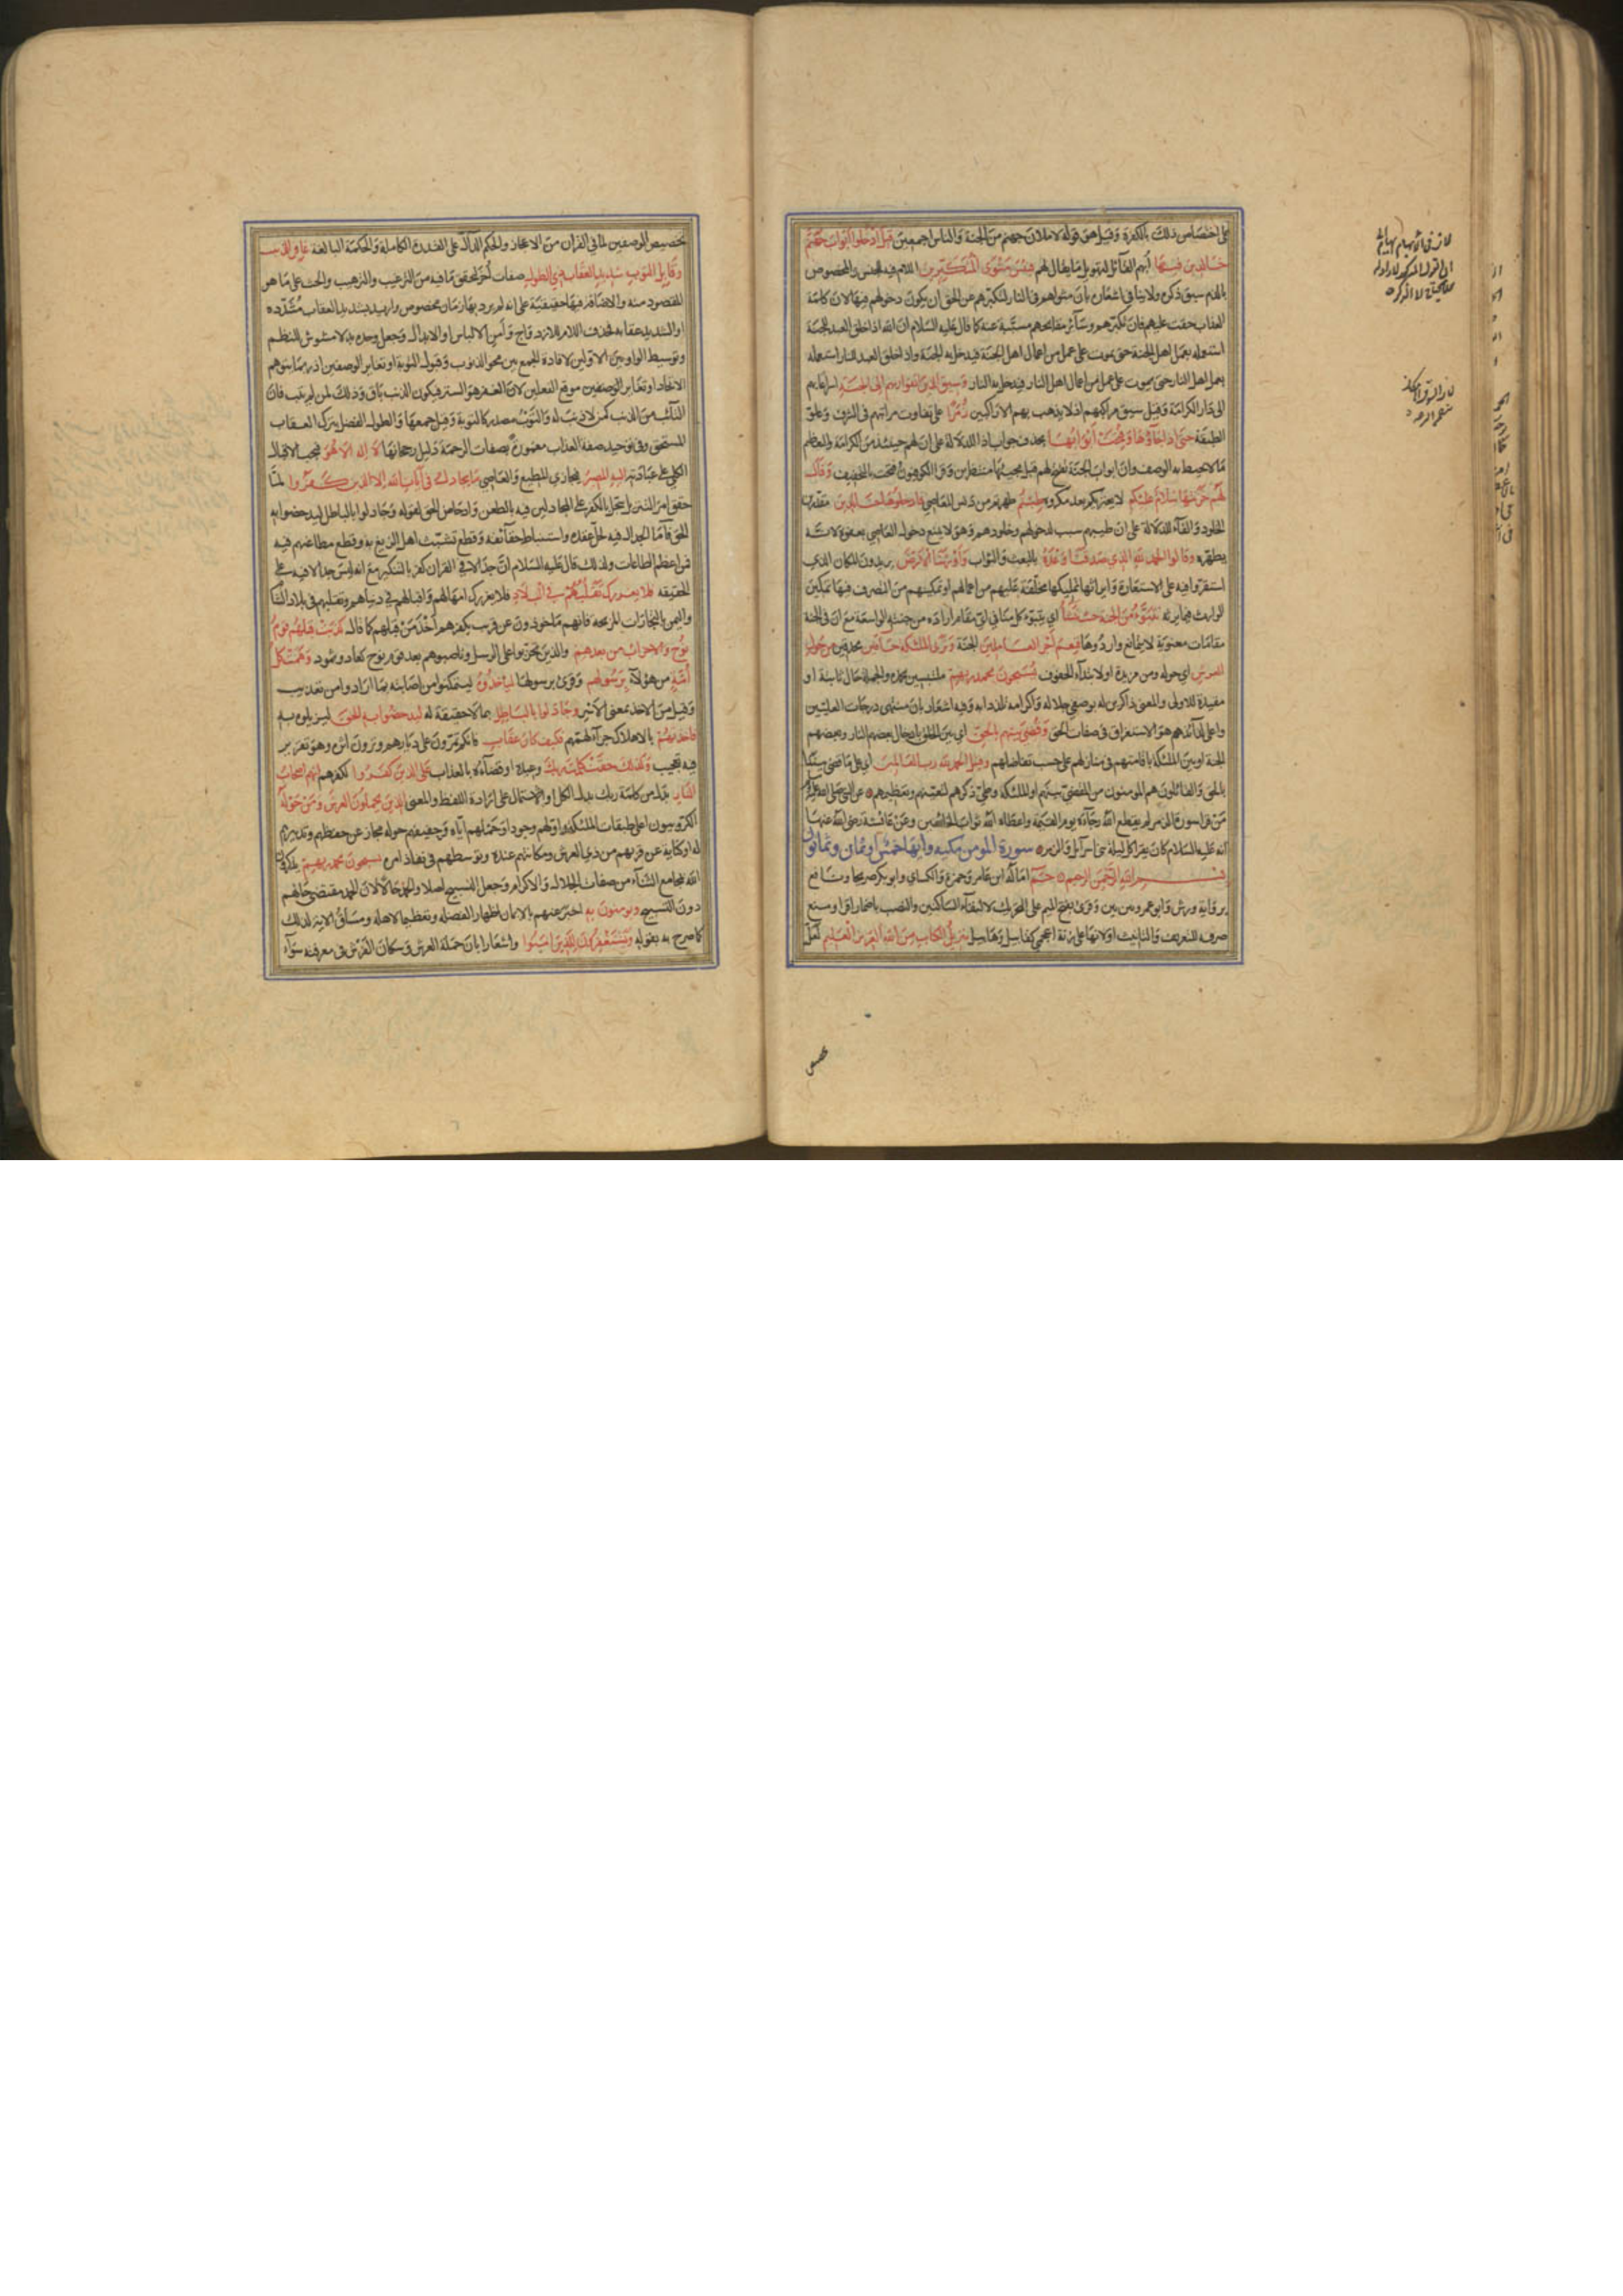 على اختصاص ذلك بالكفرة وقيل هو قوله لاملان جهنم من الجنة والناس اجمعين قيل ادخلوا ابواب جهنم
خالدين فيها ابهم القائل لتهويل ما يقال لهم فبئس مثوى المتكبرين اللام فيه للجنس والمخصوص
بالذم سبق ذكره ولا ينافي اشعاره بان مثواهم في النار لتكبرهم عن الحق ان يكون دخولهم فيها لان كلمة
العذاب حقت عليهم فان تكبرهم وسائر مقابحهم مسببة عنه كما قال عليه السلام ان الله اذا خلق العبد للجنة
استعمله بعمل اهل الجنة حتى يموت على عمل من اعمال اهل الجنة فيدخل به الجنة واذا خلق العبد للنار استعمله
بعمل اهل النار حتى يموت على عمل من اعمال اهل النار فيدخل به النار وسيق الذين اتقوا ربهم الى الجنة اسراعا بهم
الى دار الكرامة وقيل سيق مراكبهم اذ لا يذهب بهم الا راكبين زمرا على تفاوت مراتبهم في الشرف وعلو
الطبقة حتى اذا جاؤها وفتحت ابوابها حذف جواب اذا للدلالة على ان لهم حينئذ من الكرامة والتعظيم
ما لا يحيط به الوصف وان ابواب الجنة تفتح لهم قبل مجيئها منتظرين وقرا الكوفيون فتحت بالتخفيف وقال
لهم خزنتها سلام عليكم لا يعتريكم بعد مكروه طبتم طهرتم من دنس المعاصي فادخلوها خالدين مقدرين
الخلود والفاء للدلالة على ان طيبهم سبب لدخولهم وخلودهم وهو لا يمنع دخول العاصي بعفوه لانه
يطهره وقالوا الحمد لله الذي صدقنا وعده بالبعث والثواب واورثنا الارض يريدون المكان الذي
استقروا فيه على الاستعارة وايراثها تمليكها مخلفة عليهم من اعمالهم او تمكينهم من التصرف فيها تمكين
الوارث فيما يرثه نتبوء من الجنة حيث نشاء اي يتبوء كل منا في اي مقام اراده من جنته الواسعة مع ان في الجنة
مقامات معنوية لا يتمانع واردوها فنعم اجر العاملين الجنة وترى الملئكة حافين محدقين من حول
العرش اي حوله ومن مزيدة او لابتداء الحفوف يسبحون بحمد ربهم ملتبسين بحمده والجملة حال ثانية او
مقيدة للاولى والمعنى ذاكرين له بوصفي جلاله واكرامه تلذذا به وفيه اشعار بان منتهى درجات العليين
واعلى لذائذهم هو الاستغراق في صفات الحق وقضي بينهم بالحق اي بين الخلق بادخال بعضهم النار وبعضهم
الجنة او بين الملئكة باقامتهم في منازلهم على حسب تفاضلهم وقيل الحمد لله رب العالمين اي على ما قضى بيننا
بالحق والقائلون هم المومنون من المقضي بينهم او الملئكة وطي ذكرهم لتعينهم وتعظيمهم عن النبي صلى الله عليه
من قرا سورة الزمر لم يقطع الله رجاءه يوم القيمة واعطاه الله ثواب الخائفين وعن عائشة رضي الله عنها
انه عليه السلام كان يقرا كل ليلة بني اسرائل والزمر سورة المومن مكية وايها خمس او ثمان وثمانون
بسم الله الرحمن الرحيم حم اماله ابن عامر وحمزة والكسائي وابو بكر صريحا ونافع
برواية ورش وابو عمرو بين بين وقرئ بفتح الميم على التحريك لالتقاء الساكنين والنصب باضمار اقرا ومنع
صرفه للتعريف والتانيث او لانها على زنة اعجمي كقابيل وهابيل تنزيل الكتاب من الله العزيز العليم لعل
تخصيص
تخصيص الوصفين لما في القران من الاعجاز والحكم الدال على القدرة الكاملة والحكمة البالغة غافر الذنب
وقابل التوب شديد العقاب ذي الطول صفات اخر لتحقيق ما فيه من الترغيب والترهيب والحث على ما هو
المقصود منه والاضافة فيها حقيقية على انه لم يرد بها زمان مخصوص واريد بشديد العقاب مشدده
او الشديد عقابه فحذف اللام للازدواج وامن الالباس او الابدال وجعل وحده بدلا مشوش للنظم
وتوسيط الواو بين الاولين لافادة الجمع بين محو الذنوب وقبول التوبة او تغاير الوصفين اذ ربما يتوهم
الاتحاد او تغاير الوصفين موقع الفعلين لان الغفر هو الستر فيكون الذنب باق وذلك لمن لم يتب فان
التائب من الذنب كمن لا ذنب له والتوب مصدر كالتوبة وقيل جمعها والطول الفضل بترك العقاب
المستحق وفي توحيد صفة العذاب مغمورة بصفات الرحمة دليل رجحانها لا اله الا هو فيجب الاقبال
الكلي على عبادته اليه المصير فيجازي المطيع والعاصي ما يجادل في ايات الله الا الذين كفروا لما
حقق امر التنزيل سجل بالكفر على المجادلين فيه بالطعن وادحاض الحق لقوله وجادلوا بالباطل ليدحضوا به
الحق فاما الجدال فيه لحل عقده واستنباط حقائقه وقطع تشبث اهل الزيغ به وقطع مطاعنهم فيه
فمن اعظم الطاعات ولذلك قال عليه السلام ان جدالا في القران كفر بالتنكير مع انه ليس جدالا فيه على
الحقيقه فلا يغررك تقلبهم في البلاد فلا يغررك امهالهم واقبالهم في دنياهم وتقلبهم في بلاد الشام
واليمن بالتجارات المربحه فانهم ماخوذون عن قريب بكفرهم اخذ من قبلهم كما قال كذبت قبلهم قوم
نوح والاحزاب من بعدهم والذين تحزبوا على الرسل وناصبوهم بعد قوم نوح كعاد وثمود وهمت كل
امة من هؤلاء برسولهم وقرئ برسولها لياخذوه ليتمكنوا من اصابته بما ارادوا من تعذيب
وقيل من الاخذ بمعنى الاسر وجادلوا بالباطل بما لا حقيقة له ليدحضوا به الحق ليزيلوه به
فاخذتهم بالاهلاك جزاء لهمهم فكيف كان عقاب فانكم تمرون على ديارهم وترون اثره وهو تقرير
فيه تعجيب وكذلك حقت كلمة ربك وعيده او قضاءه بالعذاب على الذين كفروا لكفرهم انهم اصحاب
النار بدل من كلمة ربك بدل الكل او الاشتمال على ارادة اللفظ والمعنى الذين يحملون العرش ومن حوله
الكروبيون اعلى طبقات الملئكة واولهم وجودا وحملهم اياه وحفيفهم حوله مجاز عن حفظهم وتدبيرهم
له او كناية عن قربهم من ذي العرش ومكانتهم عنده وتوسطهم في نفاذ امره يسبحون بحمد ربهم يذكرون
الله بمجامع الثناء من صفات الجلال والاكرام وجعل التسبيح اصلا والحمد حالا لان الحمد مقتضى حالهم
دون التسبيح ويومنون به اخبر عنهم بالايمان اظهارا لفضله وتعظيما لاهله ومساق الاية لذلك
كما صرح به بقوله ويستغفرون للذين امنوا واشعارا بان حملة العرش وسكان الفرش في معرفته سواء